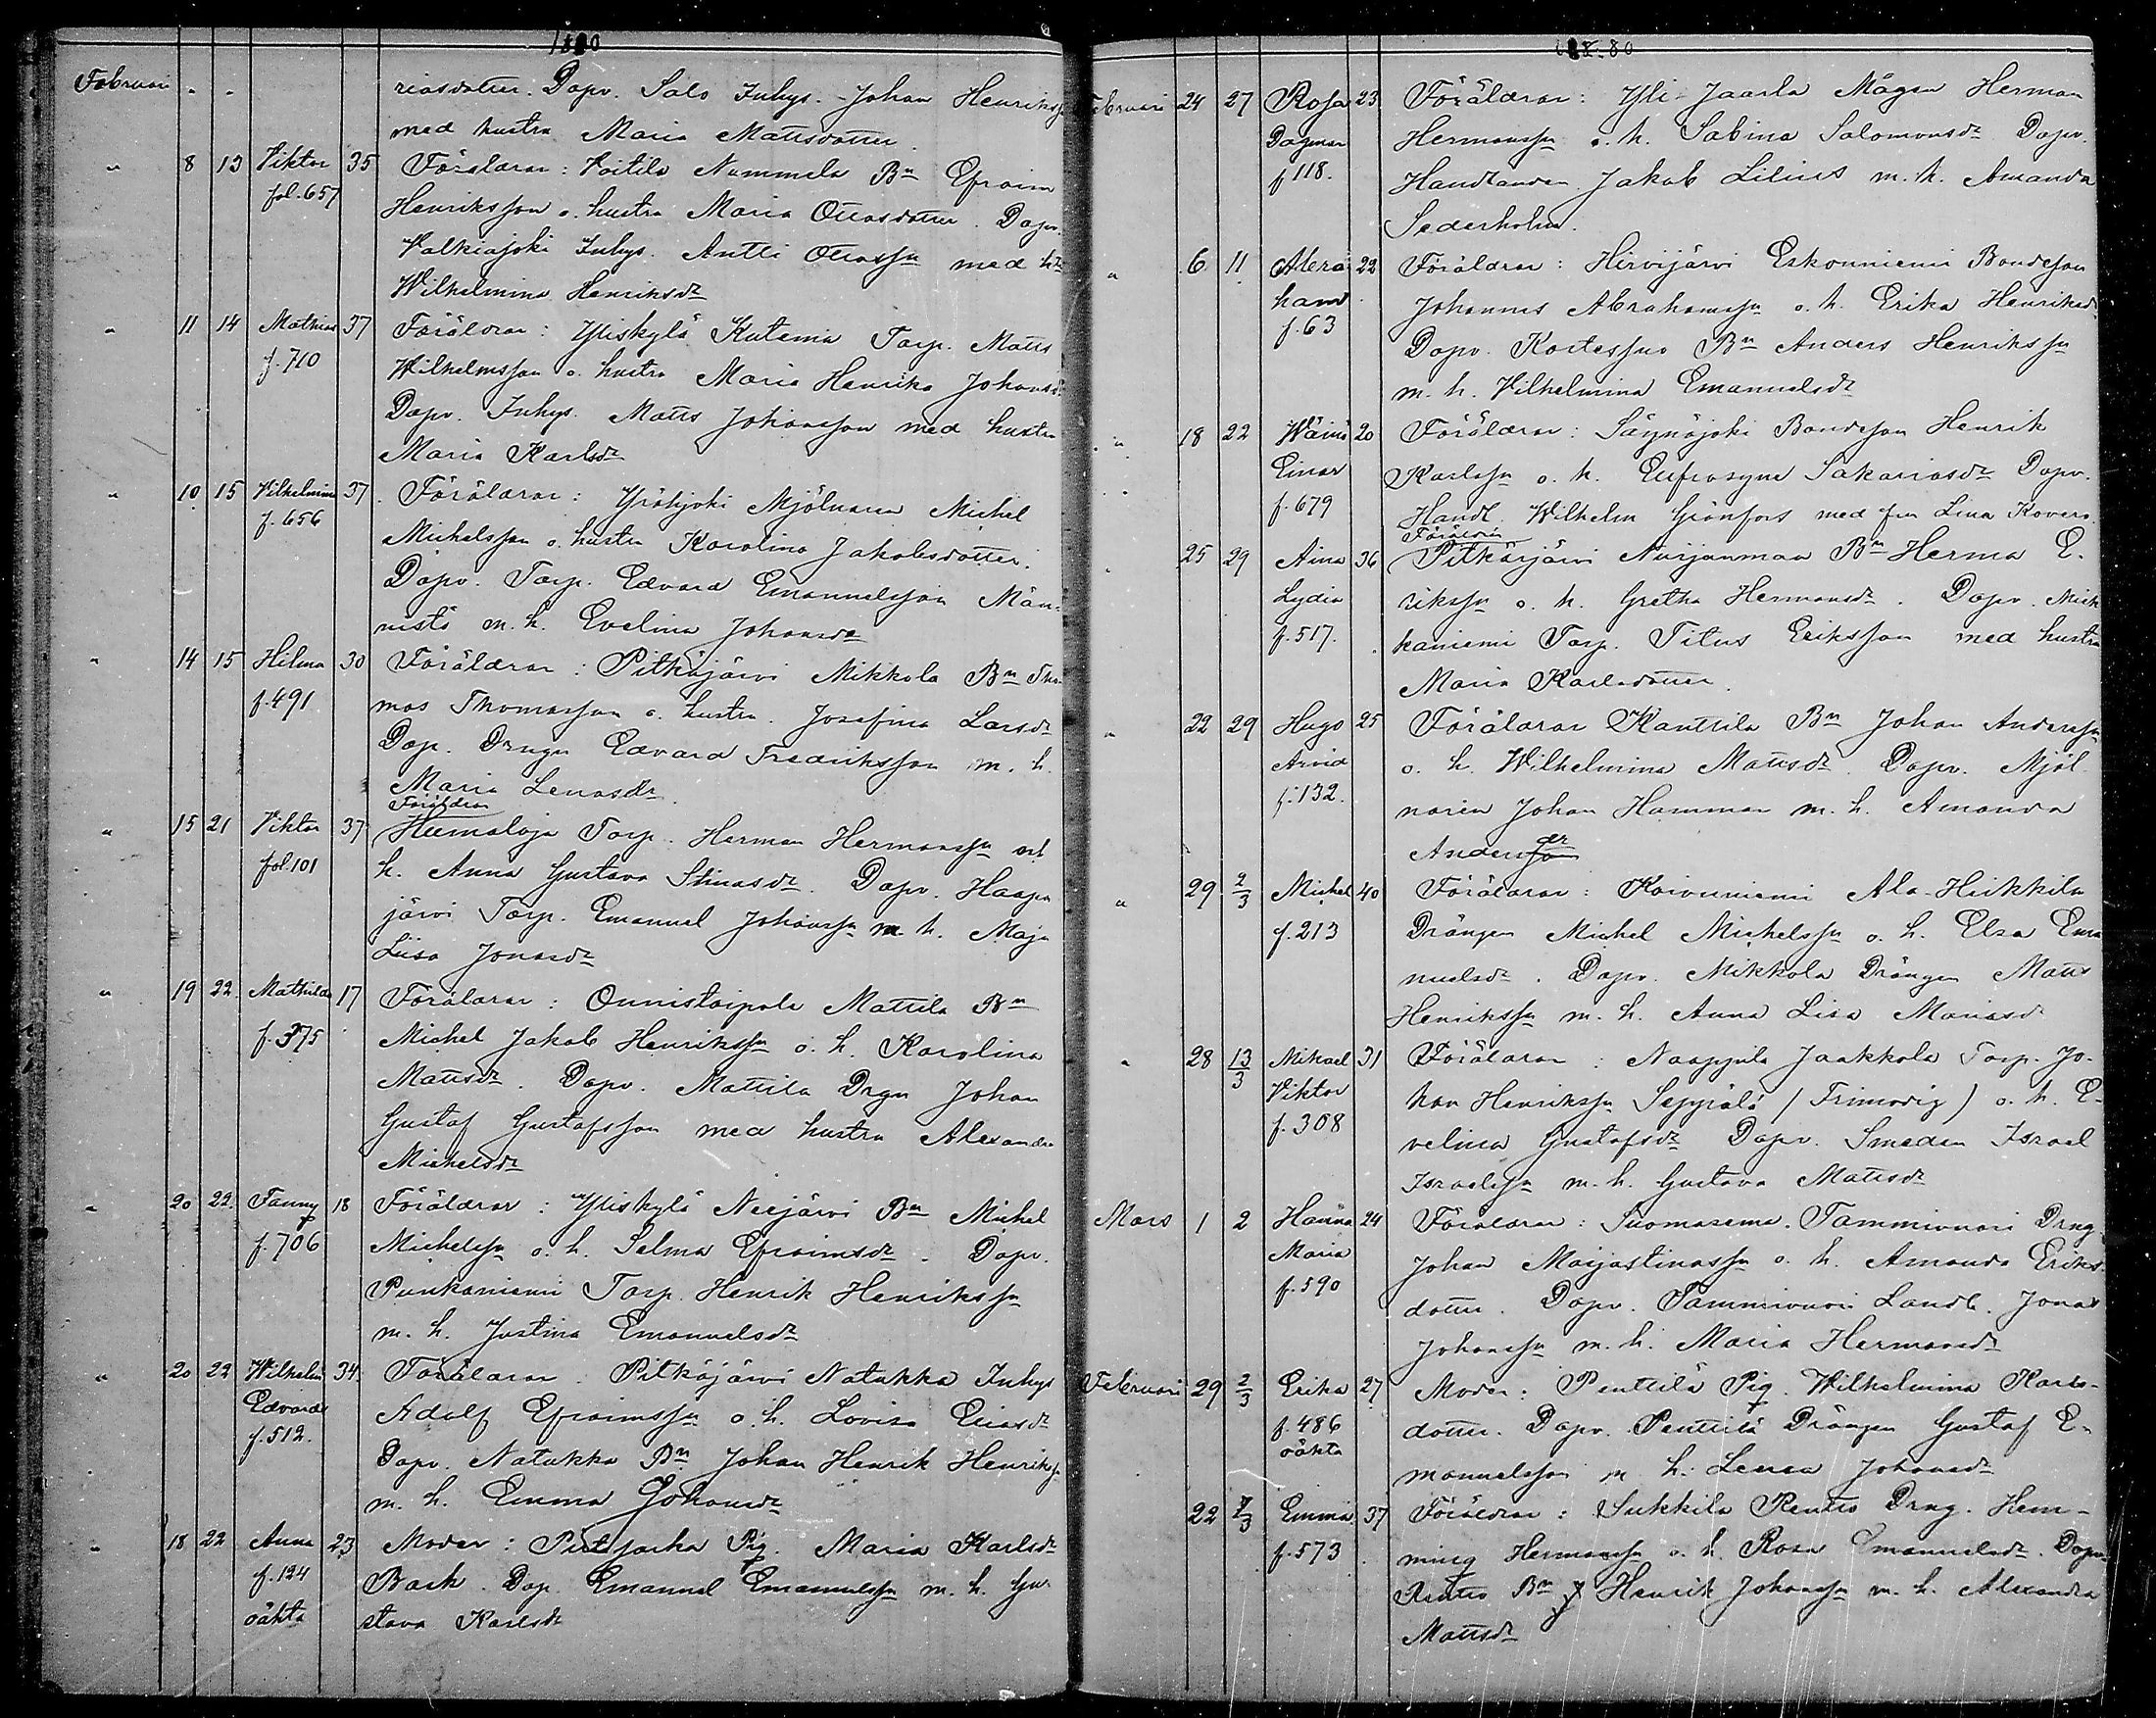 1880
Februari " " riasdotter. Dopv. Salo Inhys. Johan Henriksson
med hustru Maria Mattsdotter.
" 8 13 Viktor 35 Föräldrar: Nummela Bn Efraim
fol. 657 Henriksson o. hustru Maria Ottosdotter. Dopv.
Valkiajoki Inhys. Antti Ottossn med h:
Wilhelmina Henriksdr
" 11 14 Mathias 37 Föräldrar: Yliskylä Kutema Torp. Matts
f. 710 Wilhelmsson o. hustru Maria Henrika Johansdr
Dopv. Inhys. Matts Johansson med hustru
Maria Karlsdr
" 10 15 Vilhelmina 37 Föräldrar: Mjölnaren Michel
f. 656 Michelsson o. hustru Karolina Jakobsdotter.
Dopv. Torp. Edvard Emanuelsson Män-
nistö m. h. Evelina Johansdr
" 14 15 Hilma 30 Föräldrar: Pitkäjärvi Mikkola Bn Tho-
f. 491 mas Thomasson o. hustru Josefina Larsdr
Dop. Drngn Edvard Fredriksson m. h.
Maria Lenasdr.
Föräldrar
" 15 21 Viktor 37 Torp. Herman Hermanssn och
fol. 101 h. Anna Gustava Stinasdr. Dopv. Haapa
järvi Torp. Emanuel Johanssn m. h. Maja
Liisa Jonasdr
" 19 22 Mathilda 17 Föräldrar: Onnistaipale Mattila Bn
f. 375 Michel Jakob Henrikssn o. h. Karolina
Mattsdr. Dopv. Mattila Drgn Johan
Gustaf Gustafsson med hustru Alexandra
Michelsdr
" 20 22 Fanny 18 Föräldrar: Yliskylä Neejärvi Bn Michel
f. 706 Michelssn o. h. Selma Efraimsdr. Dopv.
Punkaniemi Torp. Henrik Henrikssn
m. h. Justina Emanuelsdr
" 20 22 Wilhelm 34 Föräldrar. Pitkäjärvi Natukka Inhys
Edvard Adolf Efraimssn o. h. Lovisa Eriasdr
f. 512. Dopv. Natukka Bn Johan Henrik Henrikss
m. h. Emma Johansdr
" 18 22 Anna 23 Moder: Pig. Maria Karlsdr
f. 124 Back. Dop. Emanuel Emanuelssn m. h. Gu-
oäkta stava Karlsdr
1880
Februari 24 27 Rosa 23 Föräldrar: Yli-Jaarla Mågen Herman
Dagmar Hermanssn o. h. Sabina Salomonsdr Dopv.
f 118. Handlanden Jakob Lilius m. h. Amanda
Sederholm.
" 6 11 Abra 22 Föräldrar: Hirvijärvi Eskonniemi Bondeson
ham Johannes Abrahamssn o. h. Erika Henriksdr
f. 63 Dopv. Kortessuo Bn Anders Henrikssn
m. h. Vilhelmina Emanuelsdr
" 18 22 Wäinö 20 Föräldrar: Säynäjoki Bondeson Henrik
Einar Karlssn o. h. Eufrosyne Sakariasdr Dopv.
f. 679 Handl. Wilhelm Grönfors med fru Lina Kovero.
Föräldrar
25 29 Aina 36 Pitkäjärvi Bn Herma E-
Lydia rikssn o. h. Gretha Hermansdr. Dopv.
f. 517. kaniemi Torp. Titus Eriksson med hustru
Maria Karlsdotter.
" 22 29 Hugo 25 Föräldrar Kanttila Bn Johan Anderssn
Arvid o. h. Wilhelmina Mattsdr. Dopv. Mjöl
f. 132. naren Johan Hamman m. h. Amanda
Andersdr
" 29 2/3 Michel 40 Föräldrar: Koivuniemi Ala-Heikkilä
f. 213 Drängen Michel Michelssn o. h. Elsa Ema
nuelsdr. Dopv. Mikkola Drängen Matts
Henrikssn m. h. Anna Lisa Mariasdr
" 28 13/3 Mikael 31 Föräldrar: Naappila Jaakkola Torp. Jo-
Viktor han Henrikssn Seppälä (Frimodig) o. h. E-
f. 308 velina Gustafsdr Dopv. Smeden Israel
Israelssn m. h. Gustava Mattsdr
Mars 1 2 Hanna 24 Föräldrar: Suomasema. Tammivuori Drng
Maria Johan Maijastinassn o. h. Amanda Eriks-
f. 590 dotter. Dopv. Tammivuori Landb. Jonas
Johanssn m. h. Maria Hermansdr
Februari 29 2/3 Erika 27 Moder: Penttilä Pig. Wilhelmina Karls-
f. 486 dotter. Dopv. Penttilä Drängen Gustaf E-
oäkta manuelsson m. h. Leena Johansdr
22 7/3 Emma 37 Föräldrar: Sukkila Rentto Drng. Hem-
f. 573 ming Hermanssn o. h. Rosa Emanuelsdr. Dopv.
Rentto Bn Henrik Johanssn m. h. Alexandra
Mattsdr